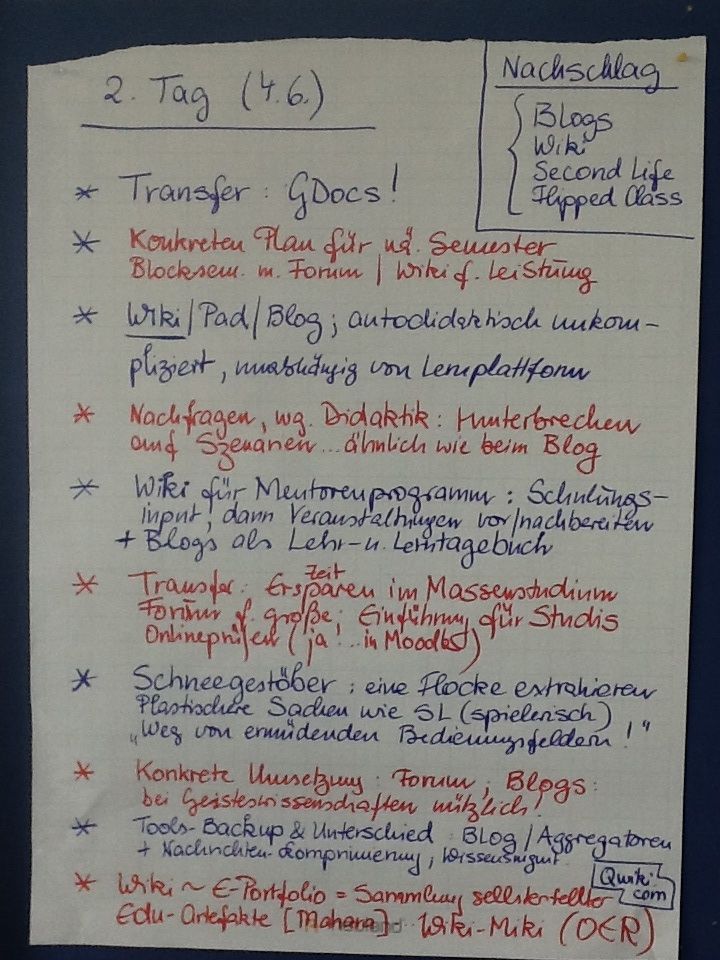 2. Tag (4.6.)
Nachschlag
Blogs
Wiki
Second Life
Flipped Class
* Transfer: GDocs!
* Konkreten Plan für nä. Semester
Blocksem. m. Forum / Wiki f. Leistung
* Wiki/Pad/Blog; autodidaktisch unkom-
pliziert, unabhängig von Lernplattform
* Nachfragen, wg. Didaktik: Hunterbrechen
auf Szenarien... ähnlich wie beim Blog
* Wiki für Mentorenprogramm: Schulungs-
input, dann Veranstaltungen vor/nachbereiten
+ Blogs als Lehr- u. Lerntagebuch
* Transfer: Zeit Ersparen im Massenstudium
Forum f. große; Einführung für Studis
Onlineprüfen (ja!... in Moodle)
* Schneegestöber: eine Flocke extrahieren
Plastischere Sachen wie SL (spielerisch)
„Weg von ermüdenden Bedienungsfeldern!"
* Konkrete Umsetzung: Forum, Blogs:
bei Geisteswissenschaften nützlich!
* Tools-Backup & Unterschied Blog/Aggregatoren
+ Nachrichten-Komprimierung, Wissensmgmt.
Qwiki.
com
* Wiki ~ E-Portfolio = Sammlung selbsterstellter
Edu-Artefakte [Mahara] Wiki-Miki (OER)